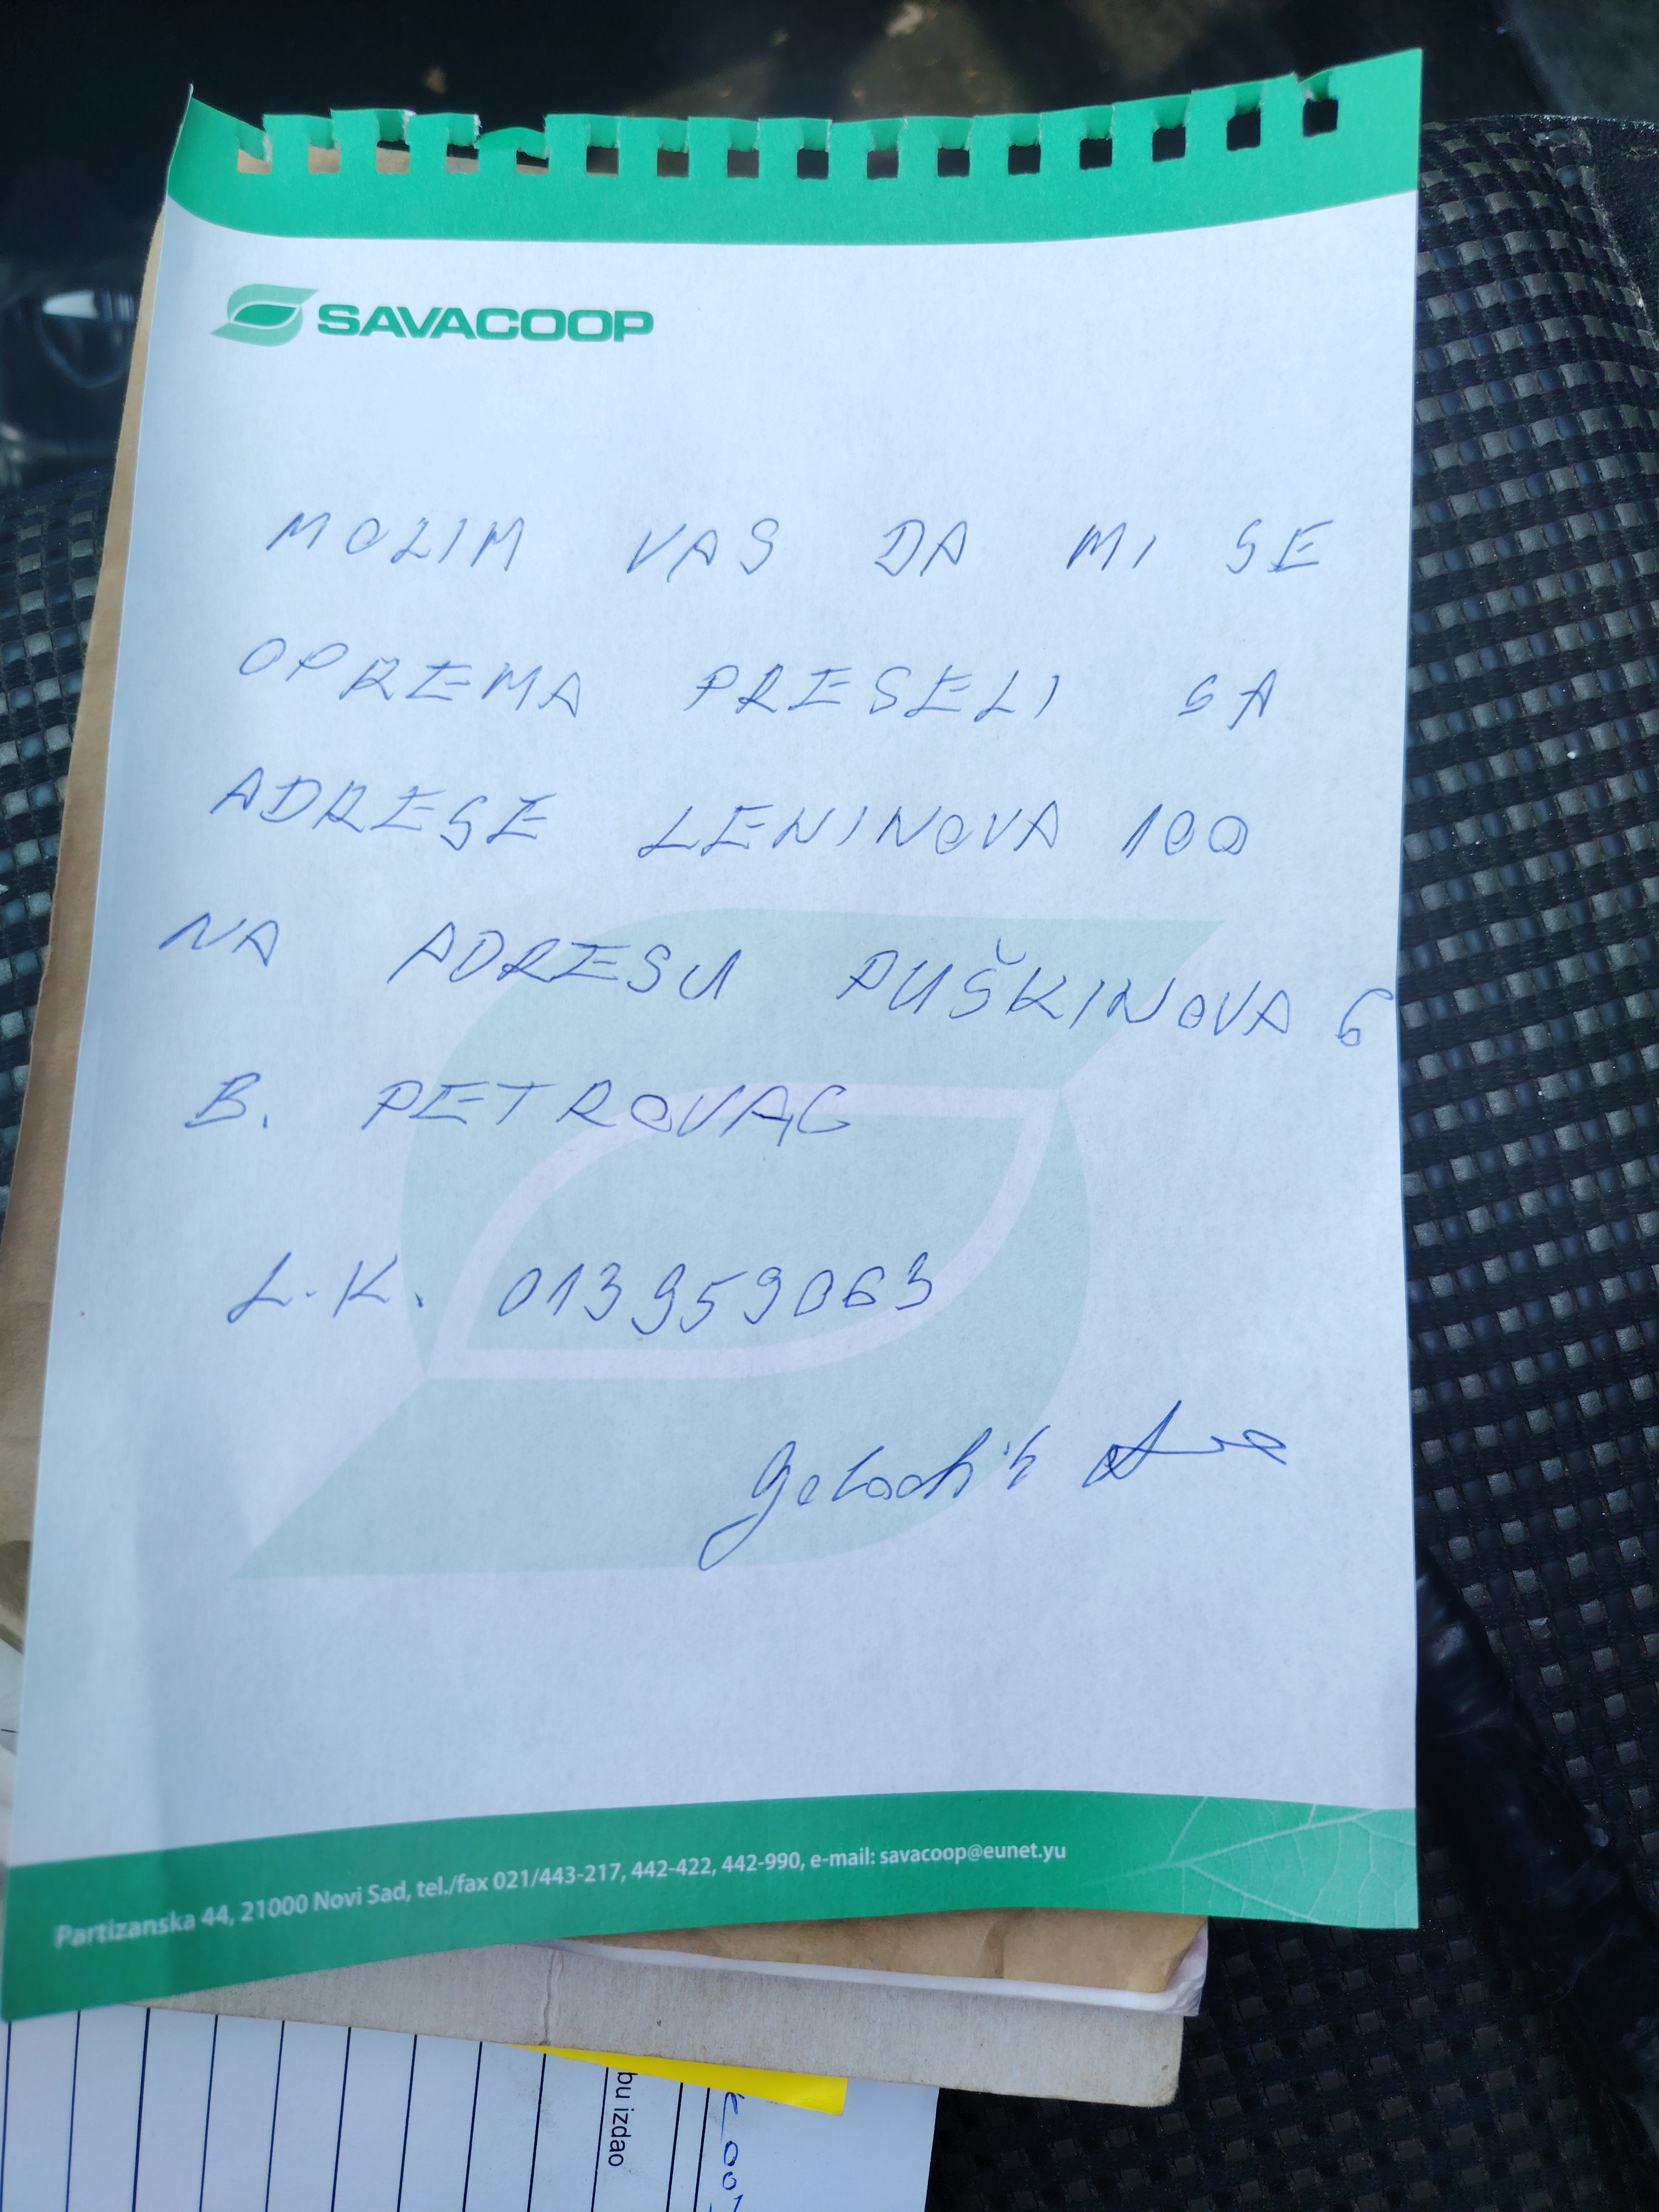 SAVACOOP
MOLIM VAS DA MI SE
OPREMA PRESELI SA
ADRESE LENINOVA 100
NA ADRESU PUŠKINOVA 6
B. PETROVAC
L.K. 013959063
Partizanska 44, 21000 Novi Sad, tel./fax 021/443-217, 442-422, 442-990, e-mail: savacoop@eunet.yu
bu izdao